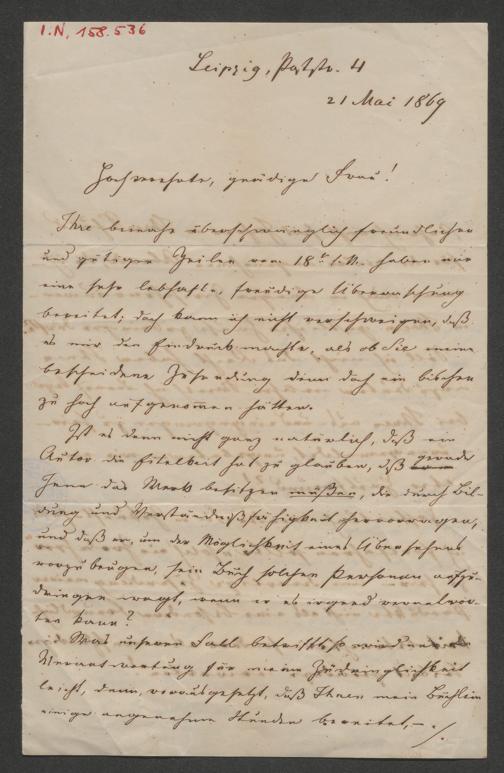 I.N. 158.536
Leipzig, Poststr. 4
21 Mai 1869
Hochverehrte, gnädige Frau!
Ihre beinahe überschwänglich freundlichen
und gütigen Zeilen vom 18t. d. M. haben mir
eine sehr lebhafte, freudige Überraschung
bereitet; doch kann ich nicht verschweigen, daß
es mir den Eindruck machte, als ob Sie meine
bescheidene Zusendung denn doch ein bischen
zu hoch aufgenommen hätten.
Ist es denn nicht ganz natürlich, daß ein
Autor die Eitelkeit hat zu glauben, daß gerade
Jene das Werk besitzen müßen, die durch Bil-
dung und Verständnißfähigkeit hervorragen,
und daß er, um der Möglichkeit eines Übersehens
vorzubeugen, sein Buch solchen Personen aufzu-
dringen wagt, wenn er es irgend verantwor-
ten kann?
Was unseren Fall betrifft, so wird mir die
Verantwortung für meine Zudringlichkeit
leicht, denn, vorausgesetzt, daß Ihnen mein Büchlein
einige angenehme Stunden bereitet, – ./.